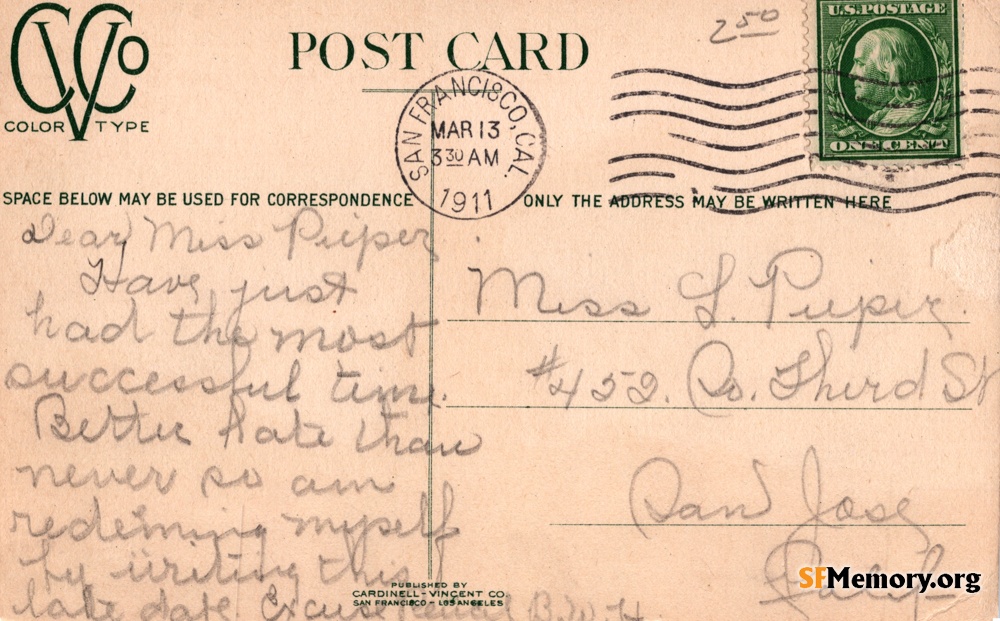 CVCo
COLOR TYPE
POST CARD
2 50
U.S. POSTAGE
ONE CENT
SAN FRANCISCO, CAL.
MAR 13
3 30 AM
1911
SPACE BELOW MAY BE USED FOR CORRESPONDENCE
ONLY THE ADDRESS MAY BE WRITTEN HERE
Dear Miss Pieper
Have just
had the most
successful time.
Better late than
never so am
redeeming myself
by writing this
late date Excuse pencil B.W.H.
Miss L. Pieper
#452. So. Third St
San Jose
Calif
PUBLISHED BY
CARDINELL-VINCENT CO.
SAN FRANCISCO - LOS ANGELES
SFMemory.org